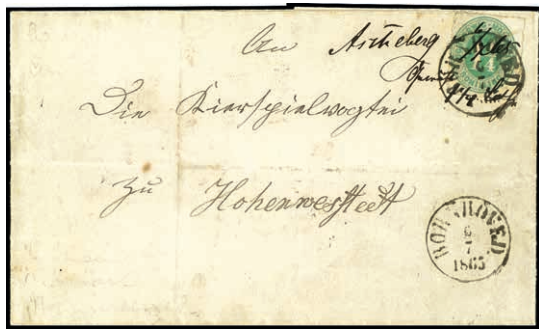 An Ascheberg
Die Kierspielvogtei
zu Hohenwestedt
BORNHÖVED
6
7
1865